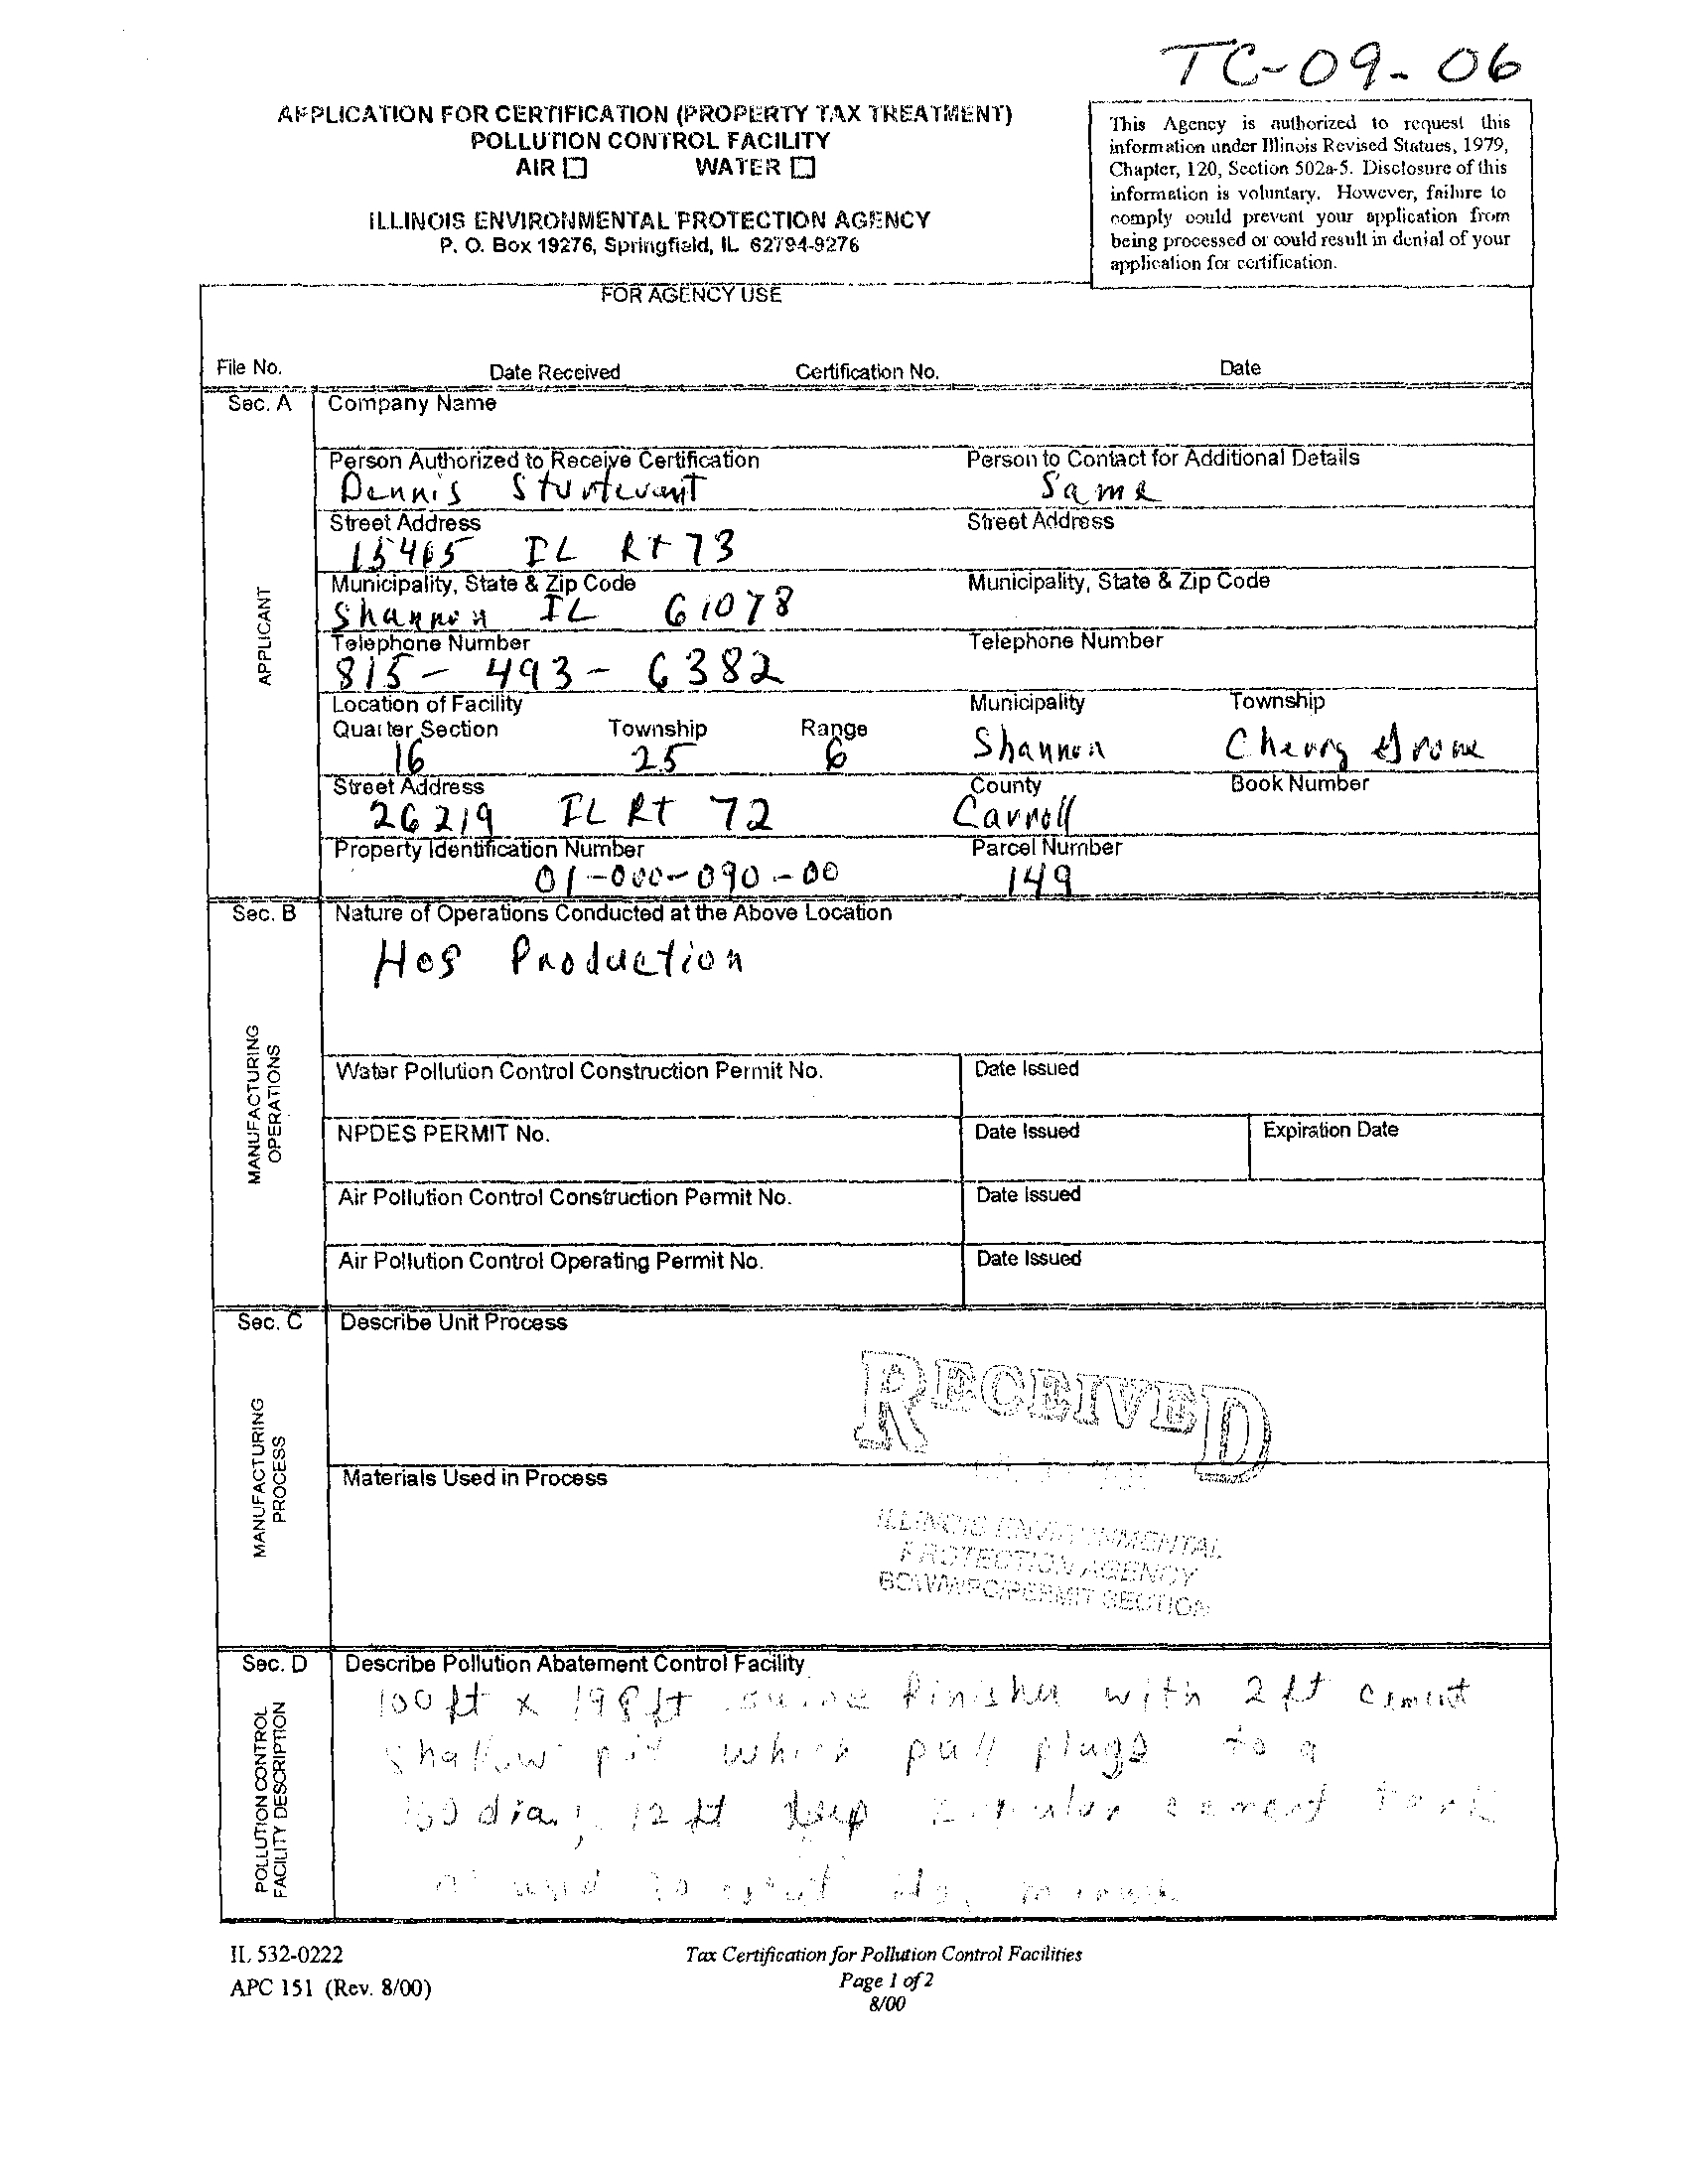 TC-09-06
APPLICATION FOR CERTIFICATION (PROPERTY TAX TREATMENT)
POLLUTION CONTROL FACILITY
AIR ☐ WATER ☐
ILLINOIS ENVIRONMENTAL PROTECTION AGENCY
P. O. Box 19276, Springfield, IL 62794-9276
This Agency is authorized to request this
information under Illinois Revised Statues, 1979,
Chapter, 120, Section 502a-5. Disclosure of this
information is voluntary. However, failure to
comply could prevent your application from
being processed or could result in denial of your
application for certification.
FOR AGENCY USE
File No. Date Received Certification No. Date
Sec. A Company Name
APPLICANT
Person Authorized to Receive Certification Person to Contact for Additional Details
Dennis Sturtevant Same
Street Address Street Address
15465 IL Rt 73
Municipality, State & Zip Code Municipality, State & Zip Code
Shannon IL 61078
Telephone Number Telephone Number
815-493-6382
Location of Facility Municipality Township
Quarter Section Township Range
16 25 6 Shannon Cherry Grove
Street Address County Book Number
26219 IL Rt 72 Carroll
Property Identification Number Parcel Number
01-000-090-00 149
Sec. B Nature of Operations Conducted at the Above Location
MANUFACTURING
OPERATIONS
Hog Production
Water Pollution Control Construction Permit No. Date Issued
NPDES PERMIT No. Date Issued Expiration Date
Air Pollution Control Construction Permit No. Date Issued
Air Pollution Control Operating Permit No. Date Issued
Sec. C Describe Unit Process
MANUFACTURING
PROCESS
RECEIVED
Materials Used in Process
ILLINOIS ENVIRONMENTAL
PROTECTION AGENCY
BOW/WPC/PERMIT SECTION
Sec. D Describe Pollution Abatement Control Facility
POLLUTION CONTROL
FACILITY DESCRIPTION
100 ft x 198 ft swine finisher with 2 ft cement
shallow pit which pull plugs to a
dia, 12 ft deep cement tank
used to
IL 532-0222 Tax Certification for Pollution Control Facilities
APC 151 (Rev. 8/00) Page 1 of 2
8/00